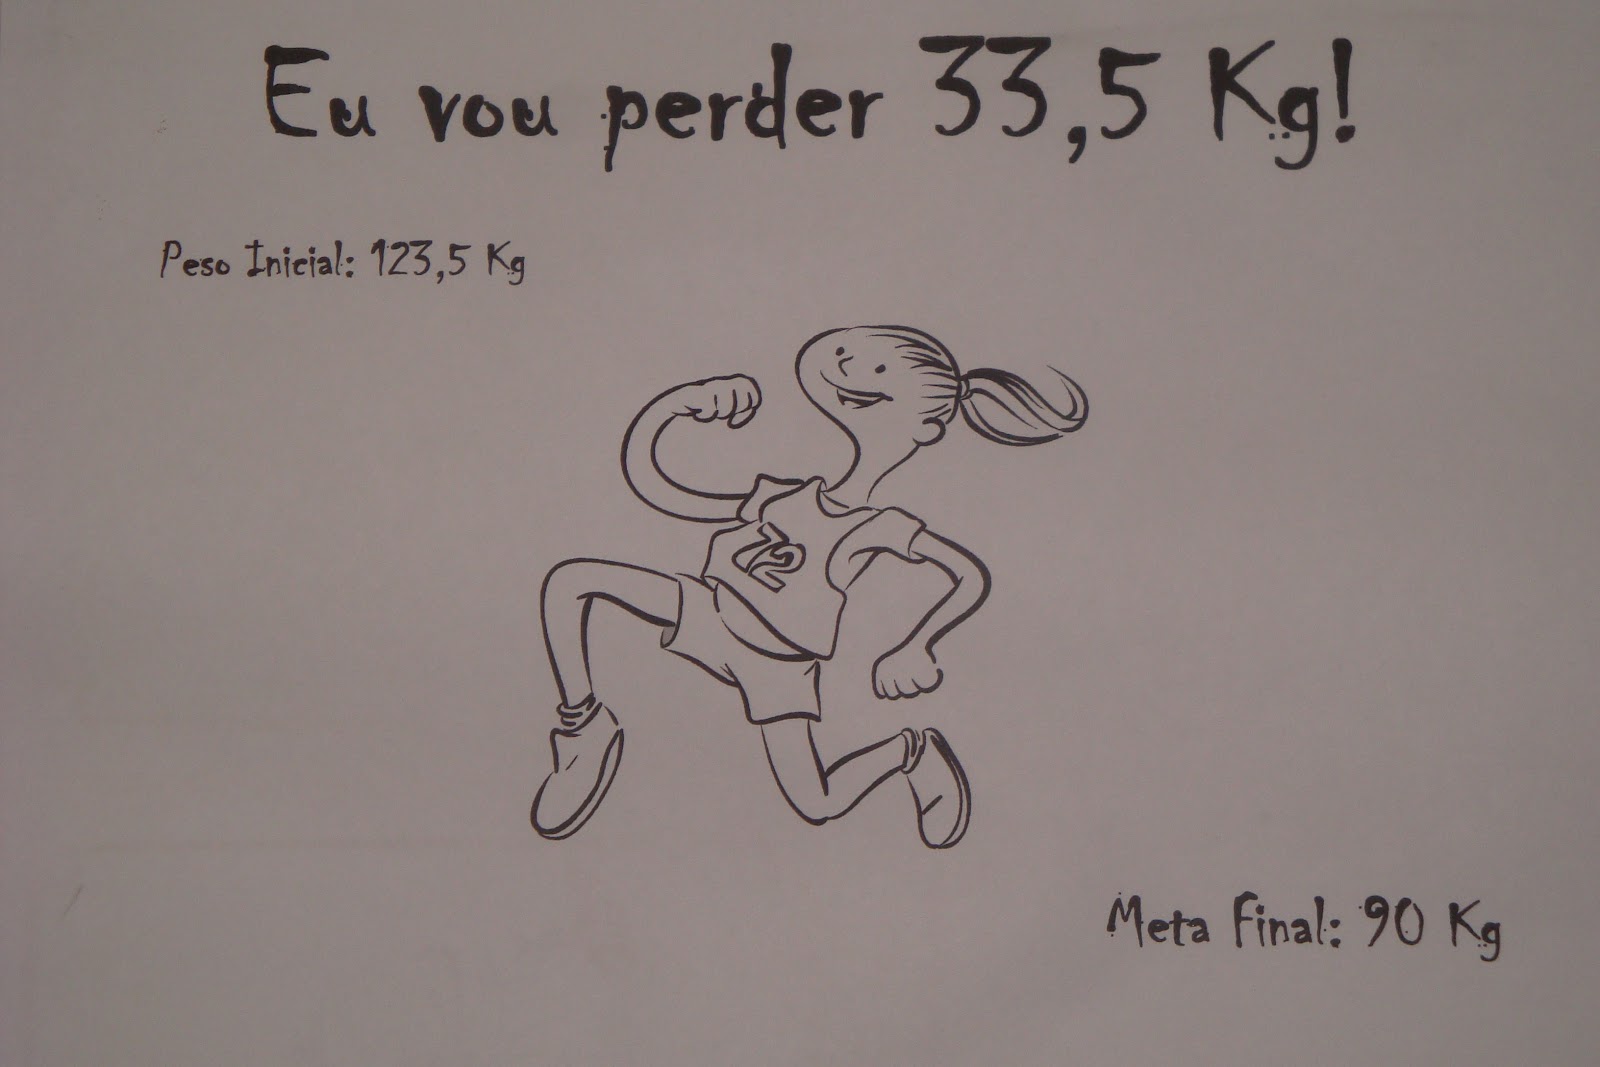 Eu vou perder 33,5 Kg!
Peso Inicial: 123,5 Kg
72
Meta Final: 90 Kg